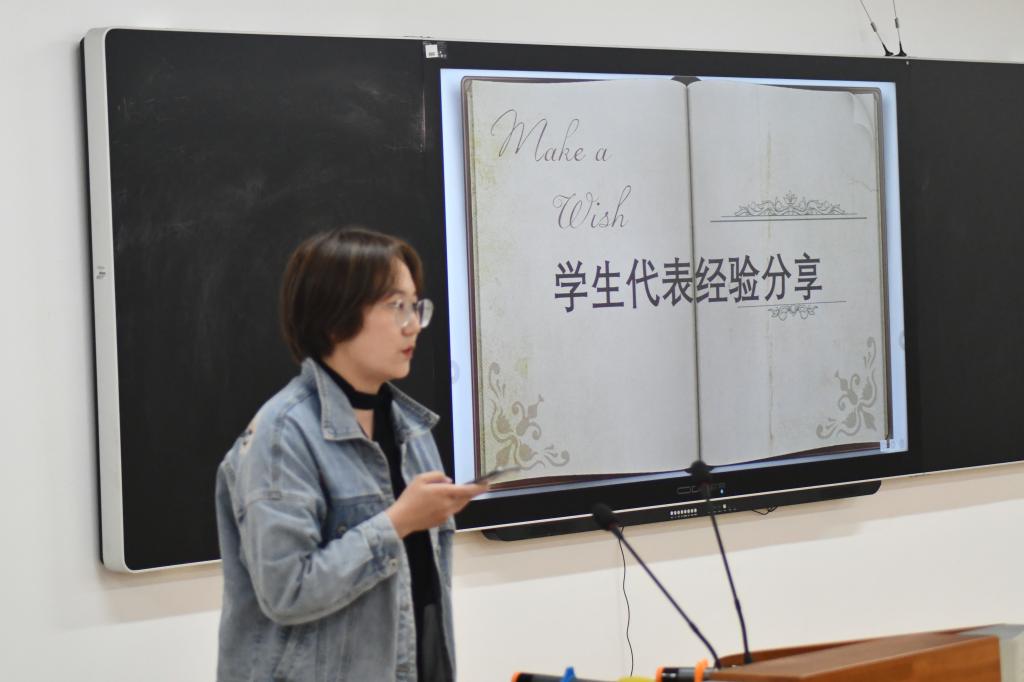 Make a
Wish
学生代表经验分享